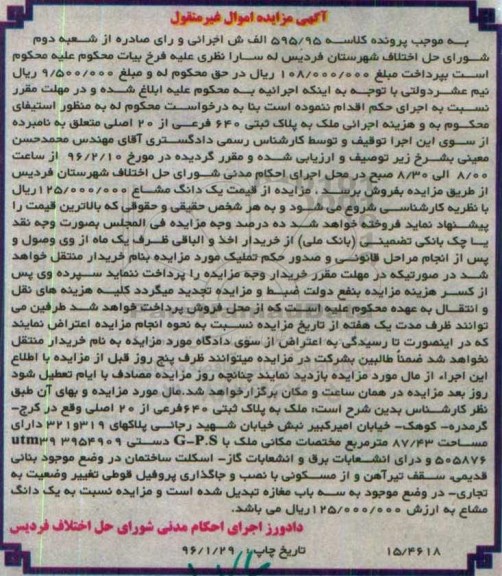 آگهی مزایده اموال غیرمنقول
به موجب پرونده کلاسه ۵۹۵/۹۵ الف ش اجرائی و رای صادره از شعبه دوم
شورای حل اختلاف شهرستان فردیس له سارا نظری علیه فرخ بیات محکوم علیه محکوم
است بپرداخت مبلغ ۱۰۸/۰۰۰/۰۰۰ ریال در حق محکوم له و مبلغ ۹/۵۰۰/۰۰۰ ریال
نیم عشردولتی با توجه به اینکه اجرائیه به محکوم علیه ابلاغ شده و در مهلت مقرر
نسبت به اجرای حکم اقدام ننموده است بنا به درخواست محکوم له به منظور استیفای
محکوم به و هزینه اجرائی ملک به پلاک ثبتی ۶۴۰ فرعی از ۲۰ اصلی متعلق به نامبرده
از سوی این اجرا توقیف و توسط کارشناس رسمی دادگستری آقای مهندس محمدحسن
معینی بشرح زیر توصیف و ارزیابی شده و مقرر گردیده در مورخ ۹۶/۲/۱۰ از ساعت
۸/۰۰ الی ۸/۳۰ صبح در محل اجرای احکام مدنی شورای حل اختلاف شهرستان فردیس
از طریق مزایده بفروش برسد. مزایده از قیمت یک دانگ مشاع ۱۲۵/۰۰۰/۰۰۰ریال
با نظریه کارشناسی شروع می شود و به هر شخص حقیقی و حقوقی که بالاترین قیمت را
پیشنهاد نماید فروخته خواهد شد ده درصد وجه مزایده فی المجلس بصورت وجه نقد
یا چک بانکی تضمینی (بانک ملی) از خریدار اخذ و الباقی ظرف یک ماه از وی وصول و
پس از انجام مراحل قانونی و صدور حکم تملیک مورد مزایده بنام خریدار منتقل خواهد
شد در صورتیکه در مهلت مقرر خریدار وجه مزایده را پرداخت ننماید سپرده وی پس
از کسر هزینه مزایده بنفع دولت ضبط و مزایده تجدید میگردد کلیه هزینه های نقل
و انتقال به عهده محکوم علیه است که از محل فروش پرداخت خواهد شد طرفین می
توانند ظرف مدت یک هفته از تاریخ مزایده نسبت به نحوه انجام مزایده اعتراض نمایند
که در اینصورت تا رسیدگی به اعتراض از سوی دادگاه مورد مزایده به نام خریدار منتقل
نخواهد شد ضمناً طالبین بشرکت در مزایده میتوانند ظرف پنج روز قبل از مزایده با اطلاع
این اجراء از مال مورد مزایده بازدید نمایند چنانچه روز مزایده مصادف با ایام تعطیل شود
روز بعد مزایده در همان ساعت و مکان برگزار خواهد شد. مال مورد مزایده و بهای آن طبق
نظر کارشناس بدین شرح است: ملک به پلاک ثبتی ۶۴۰فرعی از ۲۰ اصلی وقع در کرج-
گرمدره- کوهک- خیابان امیرکبیر نبش خیابان شهید رجائی پلاکهای ۳۱۹و۳۲۱ دارای
مساحت ۸۷/۴۳ مترمربع مختصات مکانی ملک با G-P.S دستی ۳۹۵۴۹۰۹ utm۳۹
۵۰۵۸۷۶ و درای انشعابات برق و انشعابات گاز- اسکلت ساختمان در وضع موجود بنائی
قدیمی، سقف تیرآهن و از مسکونی با نصب و جاگذاری پروفیل قوطی تغییر وضعیت به
تجاری- در وضع موجود به سه باب مغازه تبدیل شده است و مزایده نسبت به یک دانگ
مشاع به ارزش ۱۲۵/۰۰۰/۰۰۰ریال می باشد.
دادورز اجرای احکام مدنی شورای حل اختلاف فردیس
۱۵/۴۶۱۸ تاریخ چاپ: ۹۶/۱/۲۹